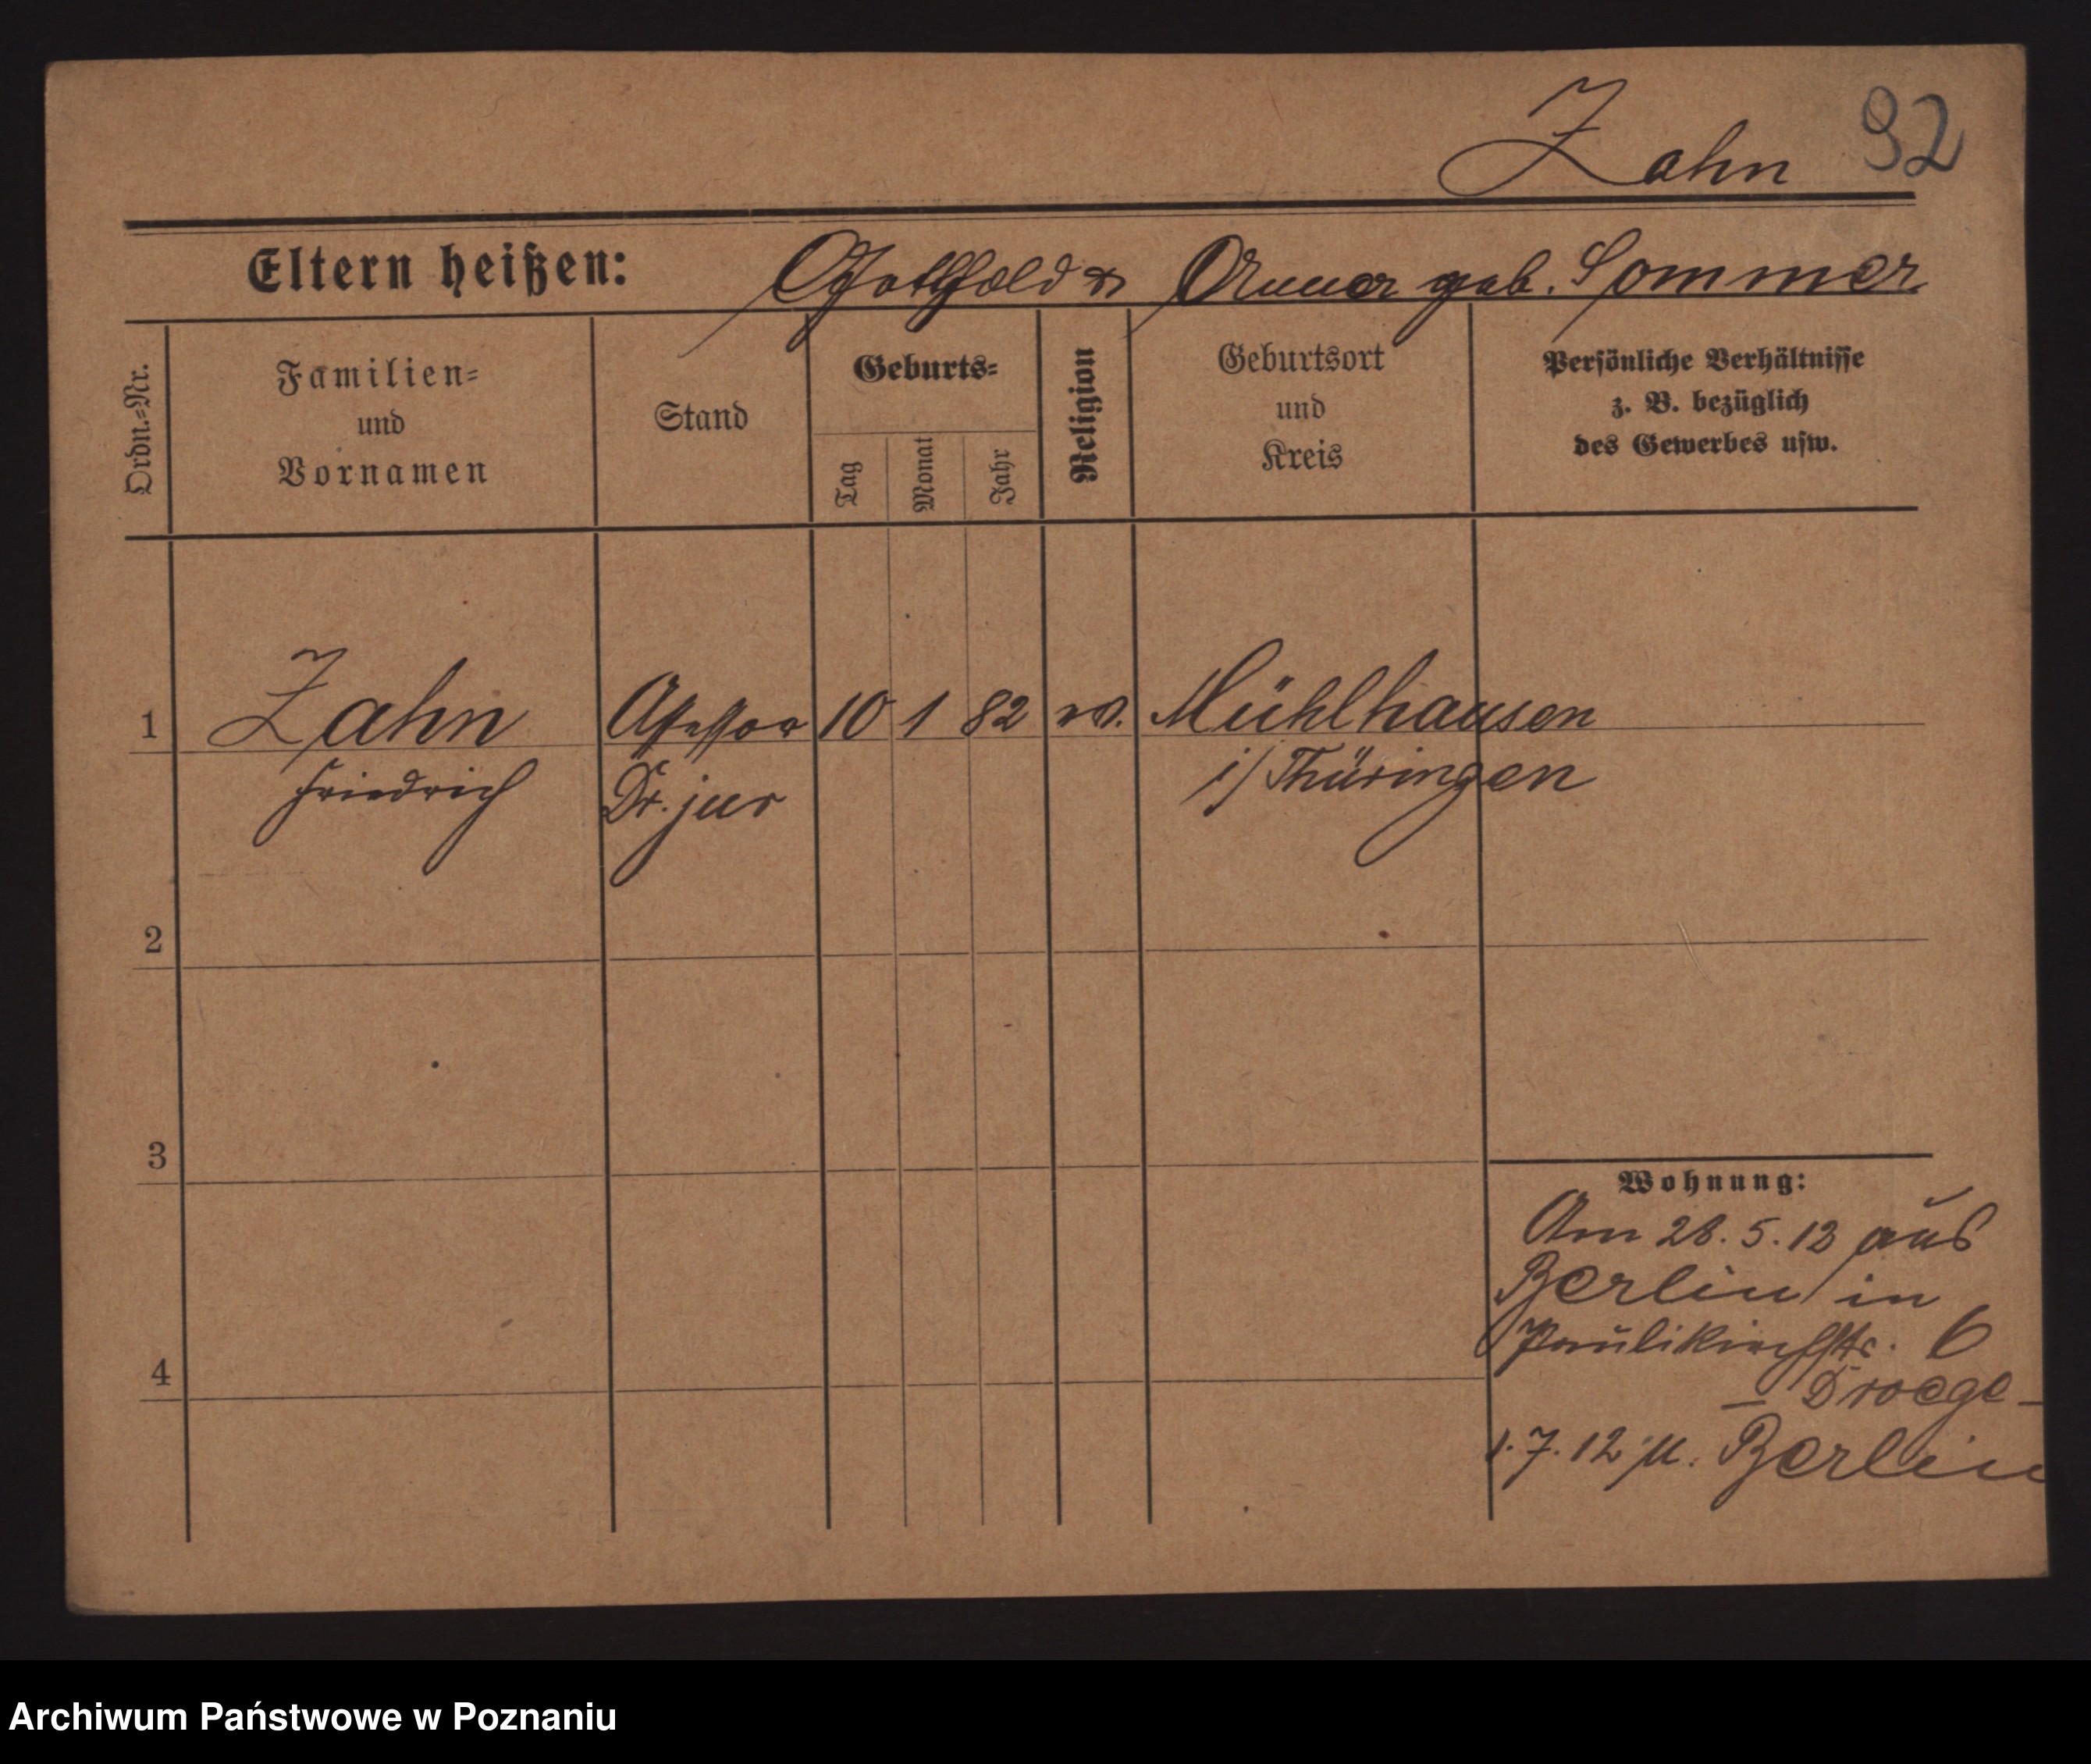 Zahn 92
Eltern heißen: Gotthold & Anna geb. Sommer
Ordn.=Nr.
Familien=
und
Vornamen
Stand
Geburts=
Tag
Monat
Jahr
Religion
Geburtsort
und
Kreis
Persönliche Verhältnisse
z. B. bezüglich
des Gewerbes usw.
1 Zahn Assessor 10 1 82 ev. Mühlhausen
Friedrich Dr. jur i/ Thüringen
2
3
Wohnung:
Am 28. 5. 12 aus
Berlin in
Paulikirchstr. 6
4
— Droege —
1. 7. 12 n. Berlin
Archiwum Państwowe w Poznaniu